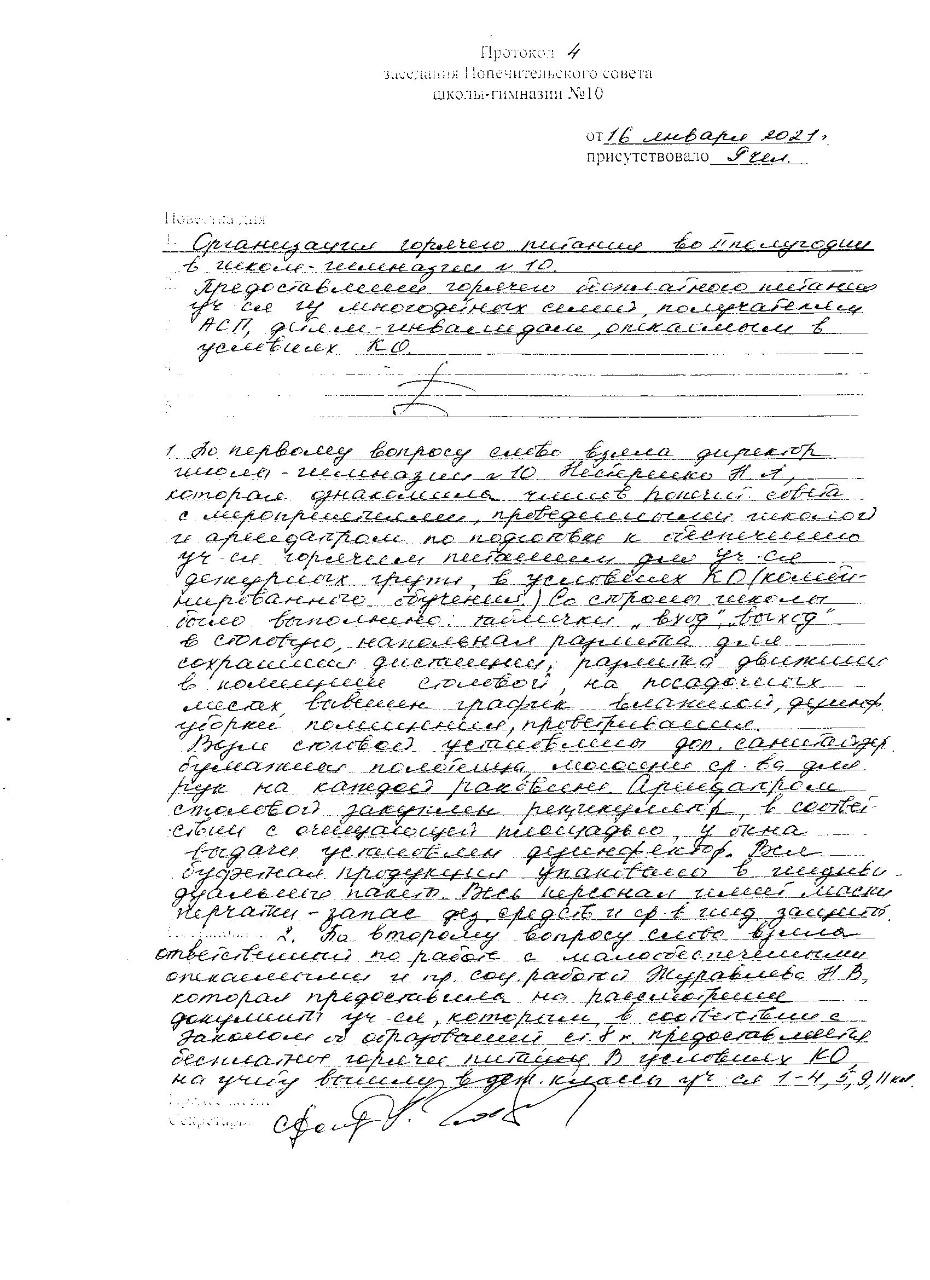 Протокол 4
заседания Попечительского совета
школы-гимназии №10
от 16 января 2021г
присутствовало 9 чел.
Повестка дня
1. Организация горячего питания во II полугодии
в школе-гимназии № 10.
Предоставление горячего бесплатного питания
уч-ся из многодетных семей, получателям
АСП, детям-инвалидам, опекаемым в
условиях КО.
5.
1. По первому вопросу слово взяла директор
школы-гимназии № 10 Нестеренко Н А,
которая ознакомила членов попечит совета
с мероприятиями, проведенными школой
и арендатором по подготовке к обеспечению
уч-ся горячим питанием для уч-ся
дежурных групп, в условиях КО (комби-
нированного обучения.) Со стороны школы
было выполнено: таблички „вход", „выход"
в столовую, напольная разметка для
сохранения дистанции, разметка движения
в помещении столовой, на посадочных
местах вывешен график влажной, дезинф
уборки помещения, проветривания.
Возле столовой установлены доп. санитайзер
бумажная полотенца, моющие ср-ва для
рук на каждой раковине Арендатором
столовой закуплен рециркулятор, в соответ-
ствии с очищающей площадью, у окна
выдачи установлен дезинфектор. Вся
буфетная продукция упакована в индиви-
дуальные пакеты. Весь персонал имеет маски
перчатки - запас дез. средств и ср-в инд защиты.
2. По второму вопросу слово взяла
ответственный по работе с малообеспеченными
опекаемыми и пр. соц. работой Журавлева Н.В,
которая предоставила на рассмотрение
документы уч-ся, которым, в соответствии с
Законом об образовании ст. 8 п. предоставляется
бесплатное горячее питание В условиях КО
на учебу вышли в деж. классы уч-ся 1-4, 5, 9, 11 кл.
Секретарь